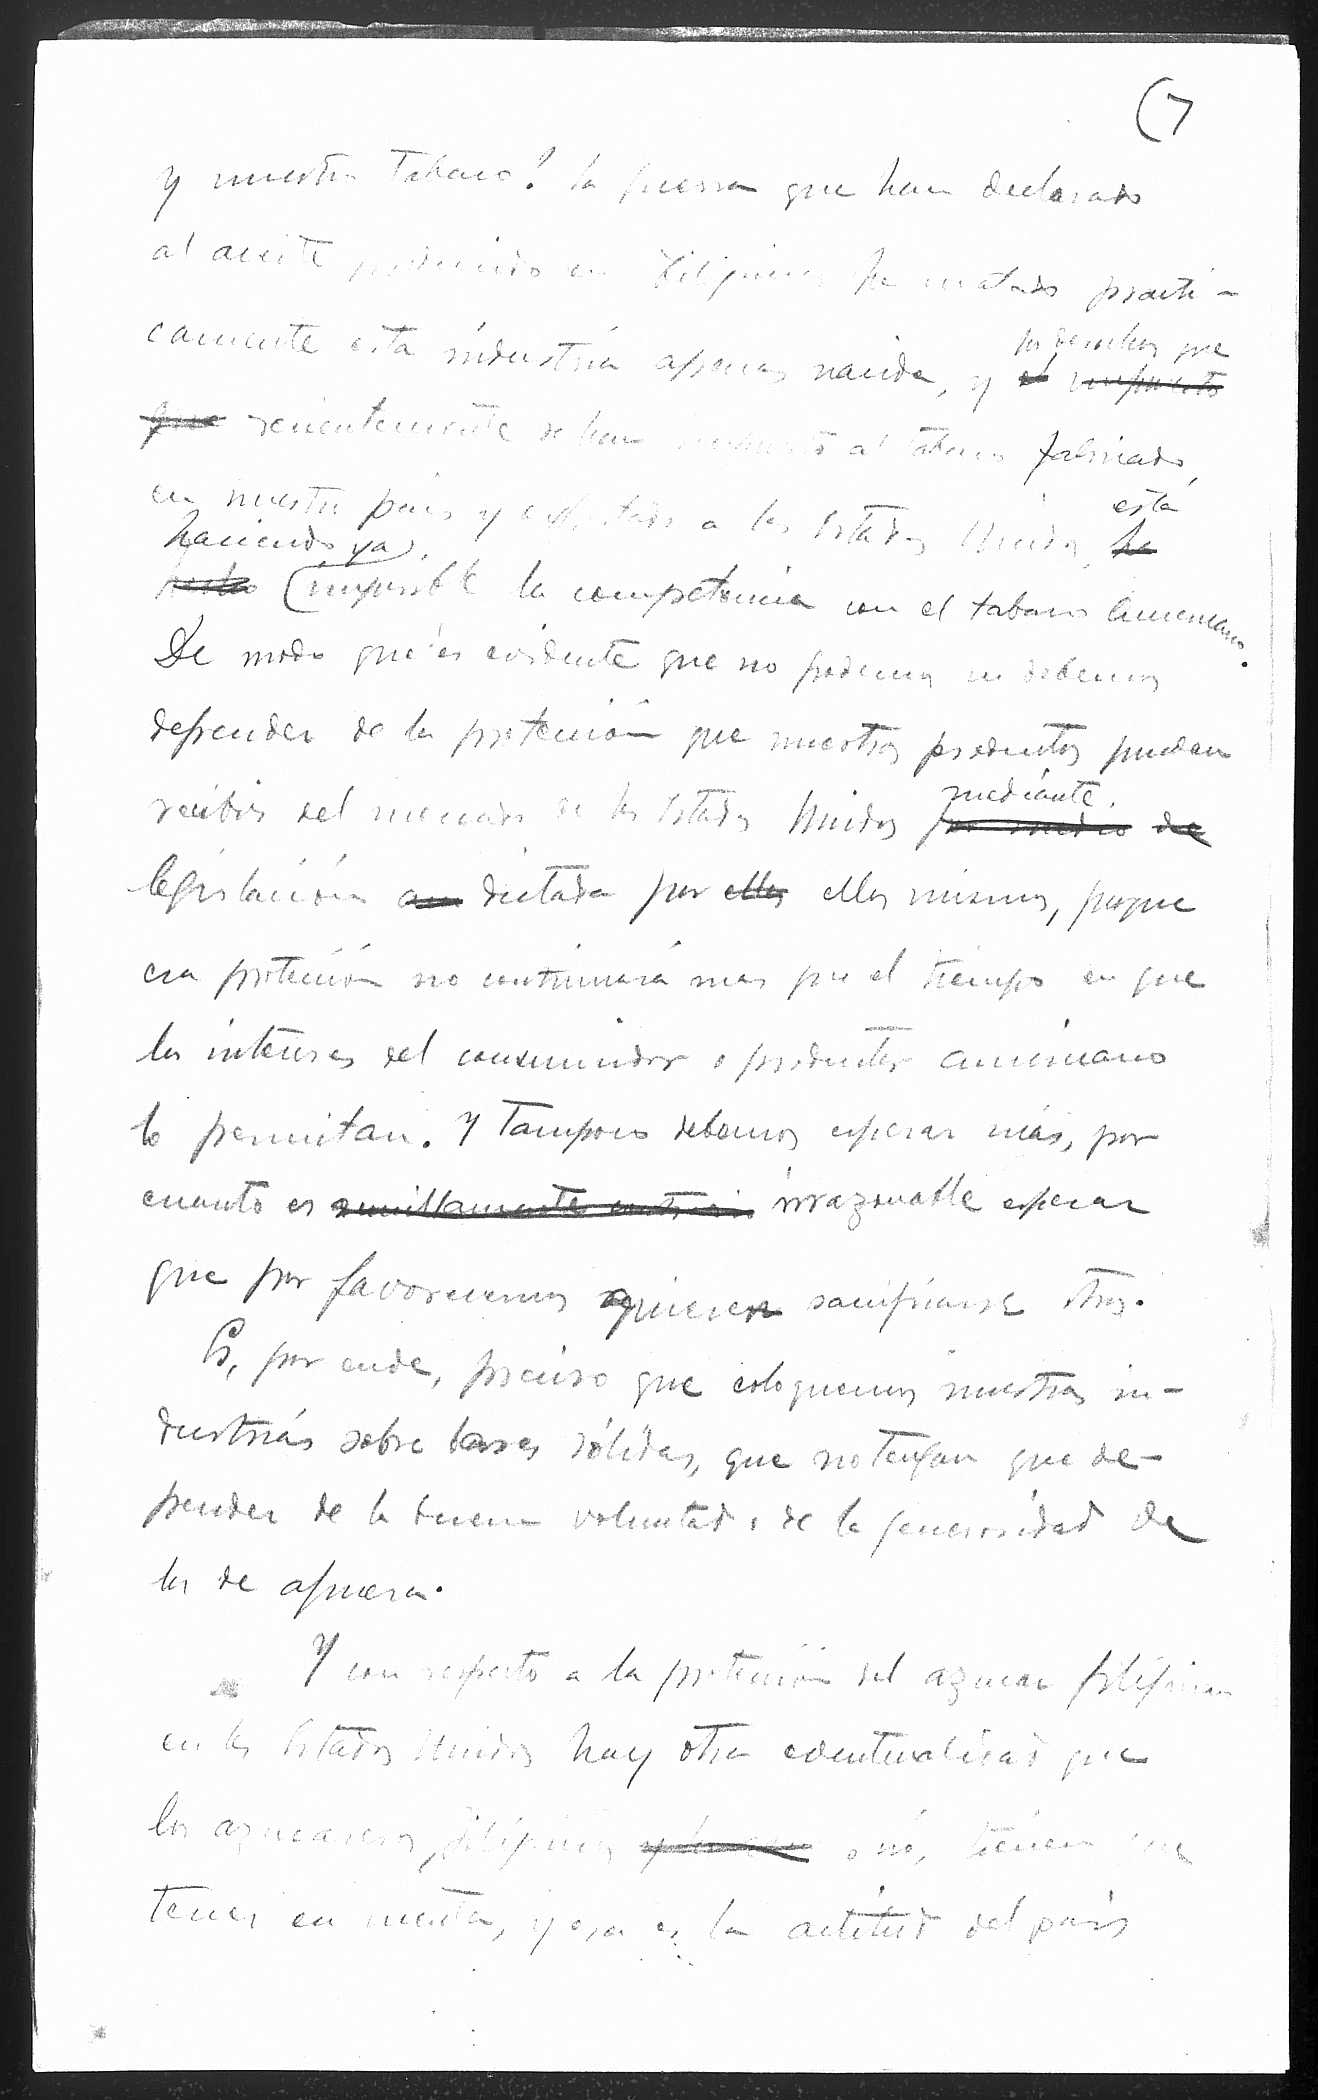 (7
y nuestro tabaco? La guerra que han declarado
al aceite producido en Filipinas ha matado practi-
camente esta industria apenas nacida, y el impuesto los derechos que
que recientemente se han impuesto al tabaco fabricado
en nuestro pais y exportado a los Estados Unidos, ha está
hecho haciendo ya imposible la competencia con el tabaco Americano.
De modo que es evidente que no podemos ni debemos
depender de la protección que nuestros productos puedan
recibir del mercado de los Estados Unidos por medio de mediante
legislación dictada por ellos ellos mismos, porque
esa protección no continuará mas que el tiempo en que
los intereses del consumidor o productor americano
lo permitan. Y tampoco debemos esperar más, por
cuanto es sencillamente contrario irrazonable esperar
que por favorecernos quieren sacrificarse otros.
Es, por ende, preciso que coloquemos nuestras in-
dustrias sobre bases sólidas, que no tengan que de-
pender de la buena voluntad o de la generosidad de
los de afuera.
Y con respecto a la protección del azucar filipino
en los Estados Unidos hay otra eventualidad que
los azucareros, filipinos o nó, tienen que
tener en cuenta, y esa es la actitud del país